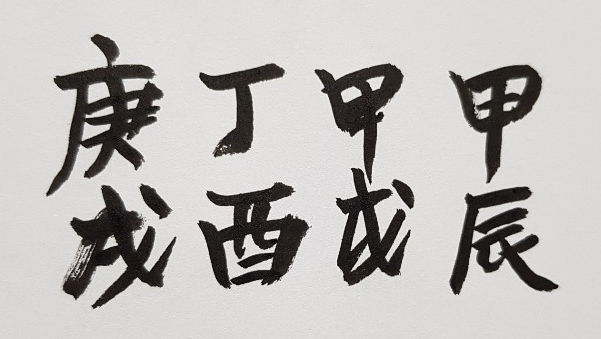 甲辰
甲戌
丁酉
庚戌